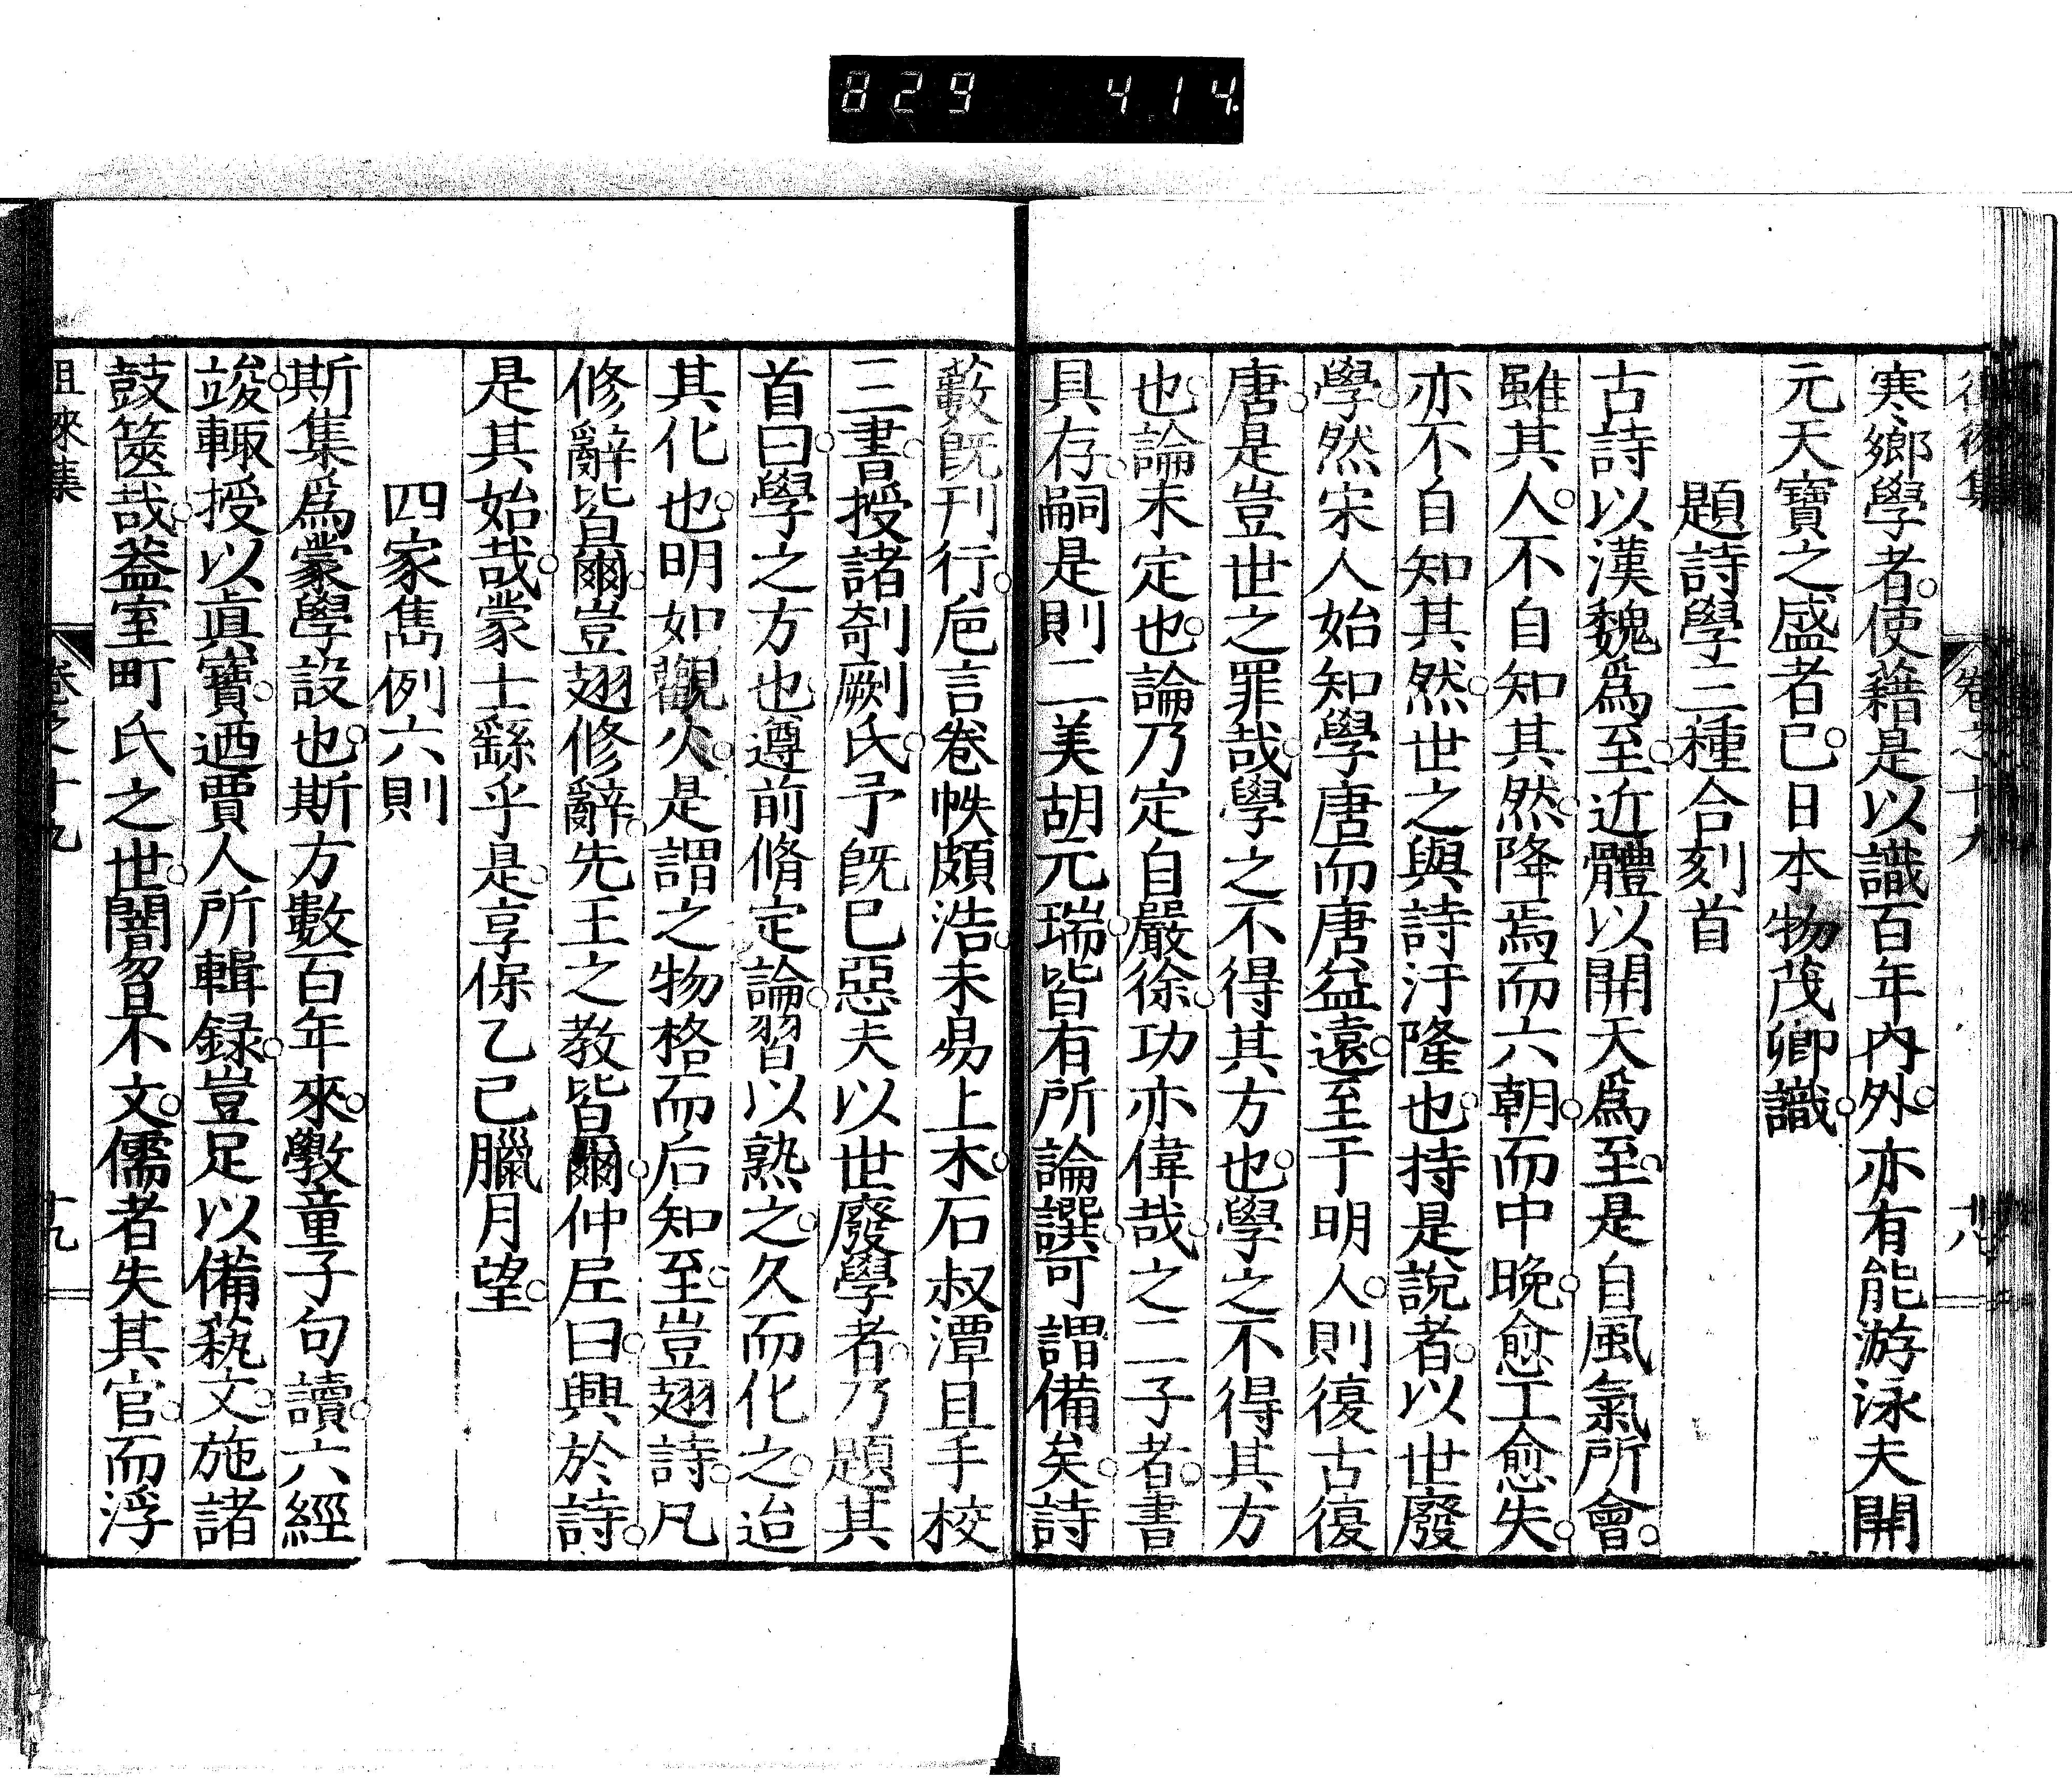 829 414
寒鄉學者。使藉是以識百年內外。亦有能游泳夫開
元天寶之盛者已。日本物茂卿識。
題詩學三種合刻首
古詩以漢魏爲至。近體以開天爲至。是自風氣所會。
雖其人。不自知其然。降焉而六朝。而中晚。愈工愈失。
亦不自知其然。世之與詩汙隆也。持是說者。以世廢
學。然宋人始知學唐而唐益遠。至于明人。則復古復
唐。是豈世之罪哉。學之不得其方也。學之不得其方
也。論未定也。論乃定自嚴徐。功亦偉哉。之二子者。書
具存。嗣是則二美胡元瑞。皆有所論譔。可謂備矣。詩
藪既刊行。巵言卷帙頗浩。未易上木。石叔潭且手校
三書。授諸剞劂氏。予既已惡夫以世廢學者。乃題其
首曰。學之方也。遵前脩定論。習以熟之。久而化之。迨
其化也。明如觀火。是謂之物格而后知至。豈翅詩。凡
修辭皆爾。豈翅修辭。先王之教皆爾。仲𡰱曰。興於詩。
是其始哉。蒙士繇乎是。享保乙己臘月望。
四家雋例六則
斯集爲蒙學設也。斯方數百年來。斅童子句讀。六經
竣。輙授以眞寶。迺賈人所輯録。豈足以備藝文。施諸
鼓篋哉。葢室町氏之世。闇曶不文。儒者失其官。而浮
徂徠集 卷之十九 十九